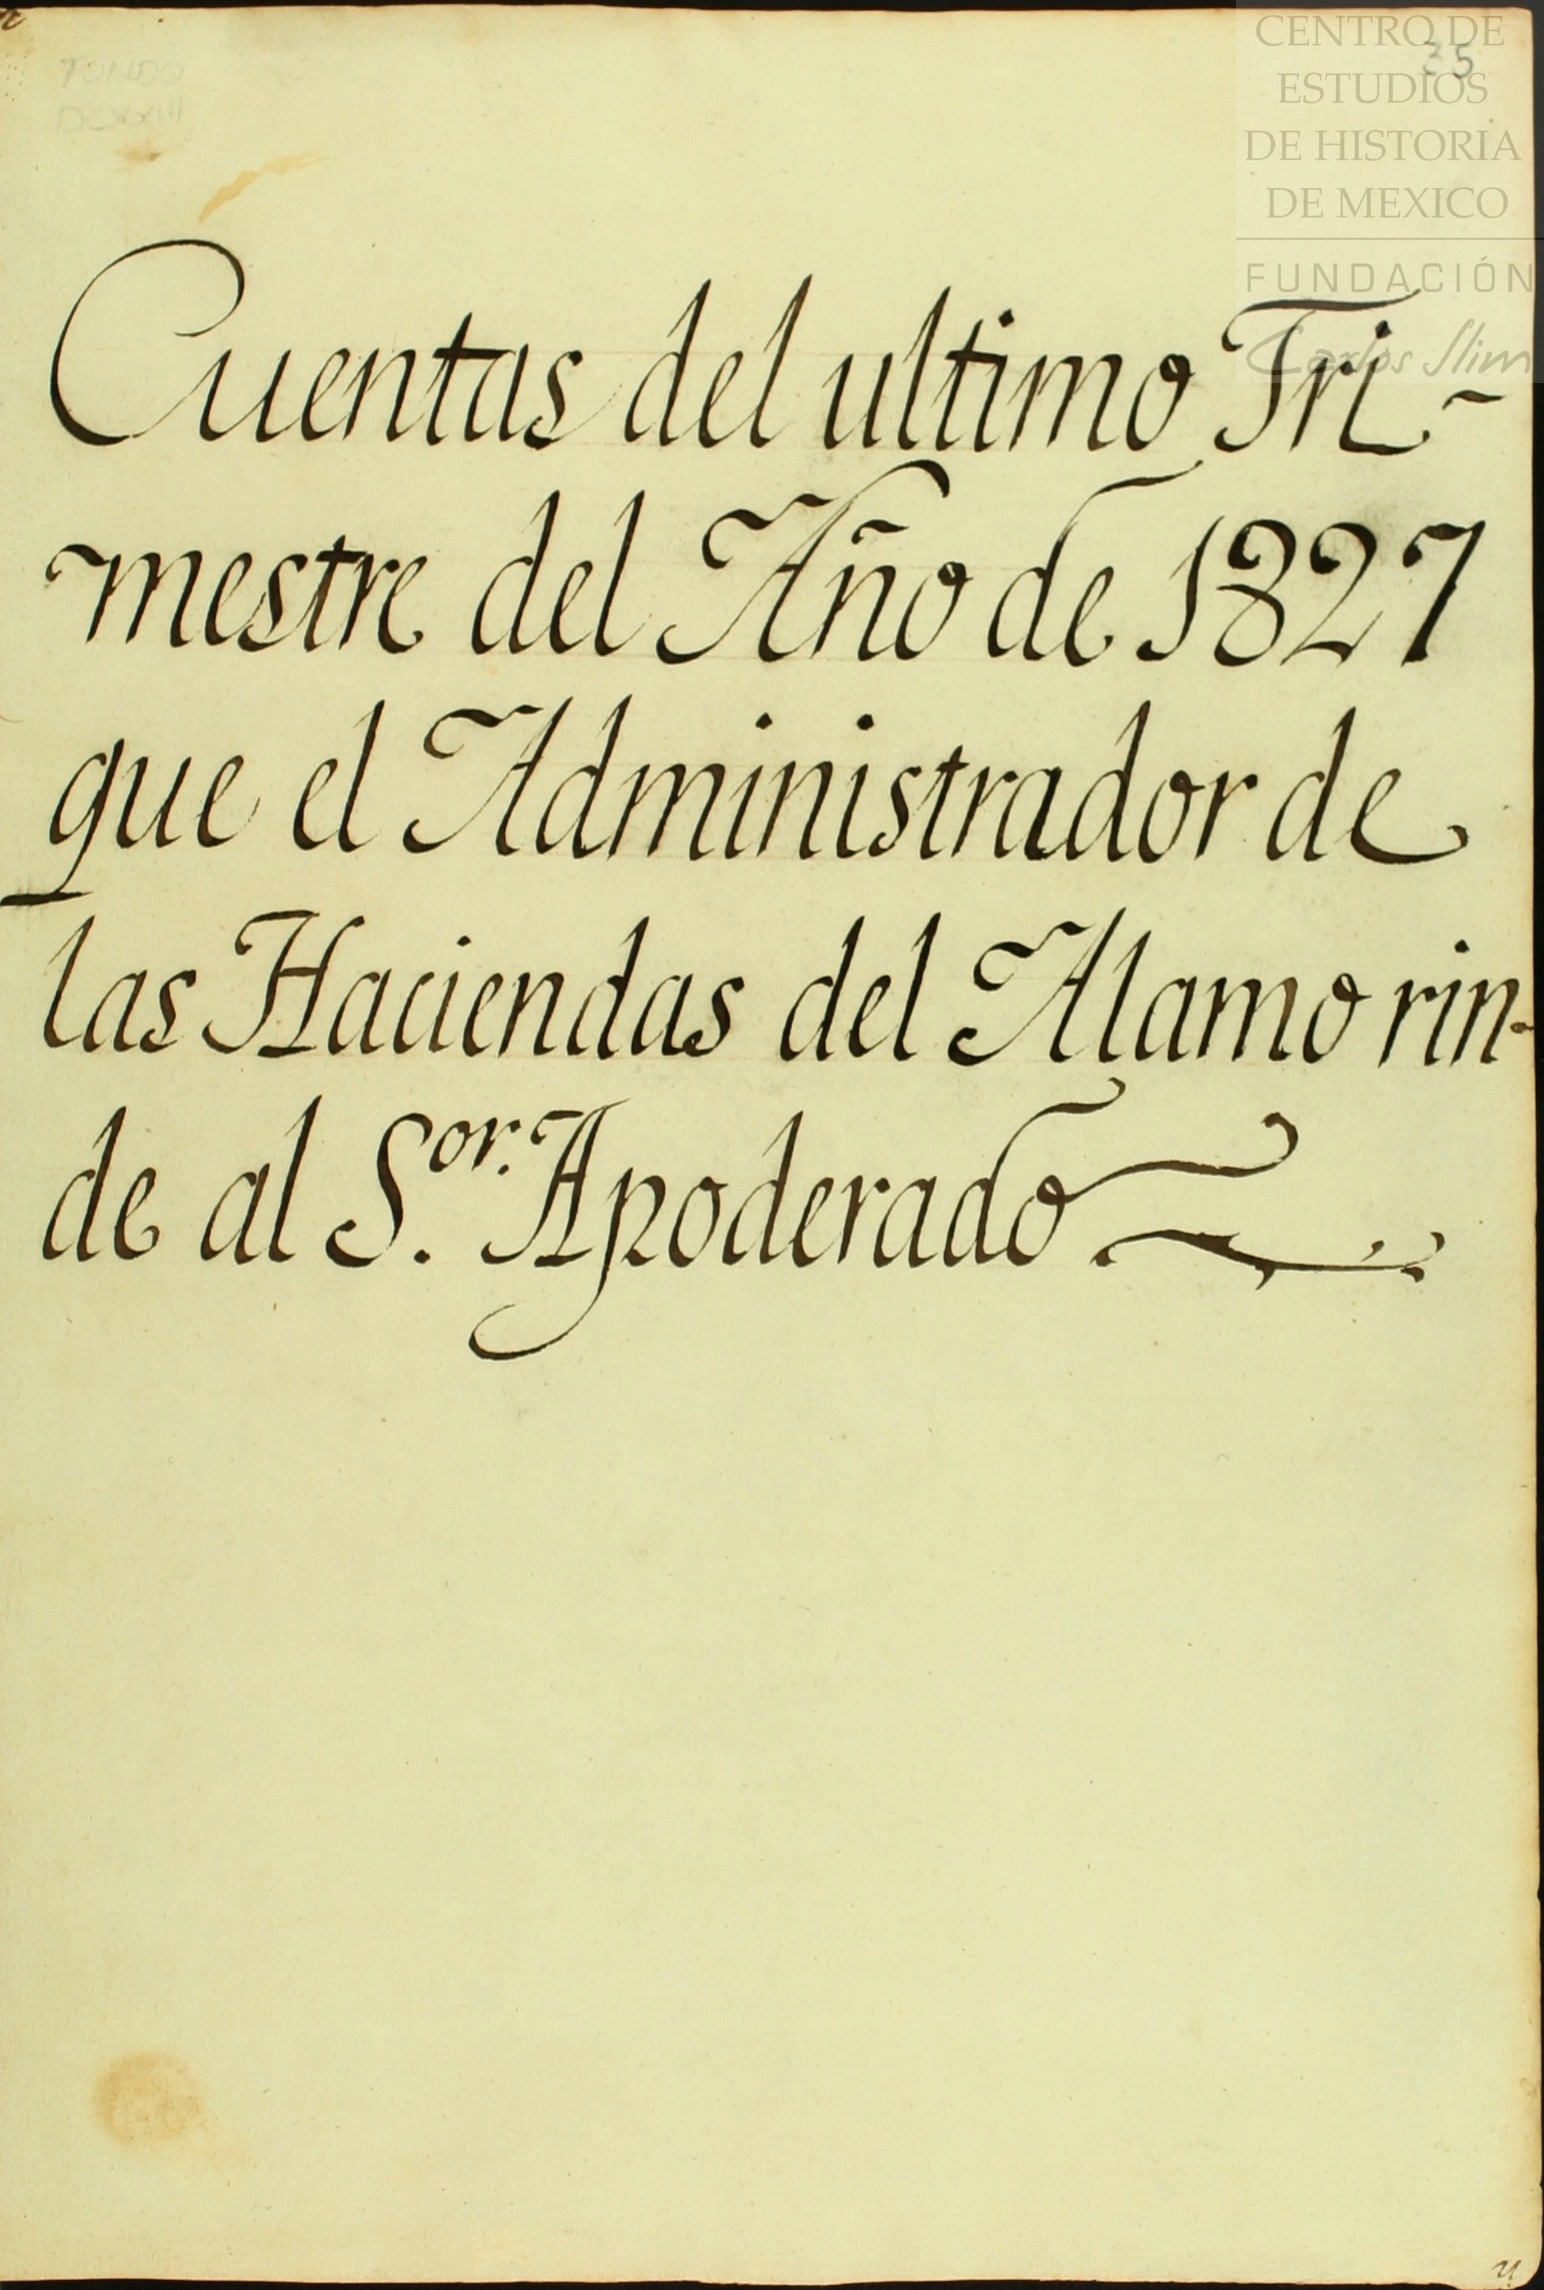 FONDO
DCXXIII
35
CENTRO DE
ESTUDIOS
DE HISTORIA
DE MEXICO
FUNDACIÓN
Carlos Slim
Cuentas del ultimo Tri-
mestre del Año de 1827
que el Administrador de
las Haciendas del Alamo rin-
de al S.or Apoderado